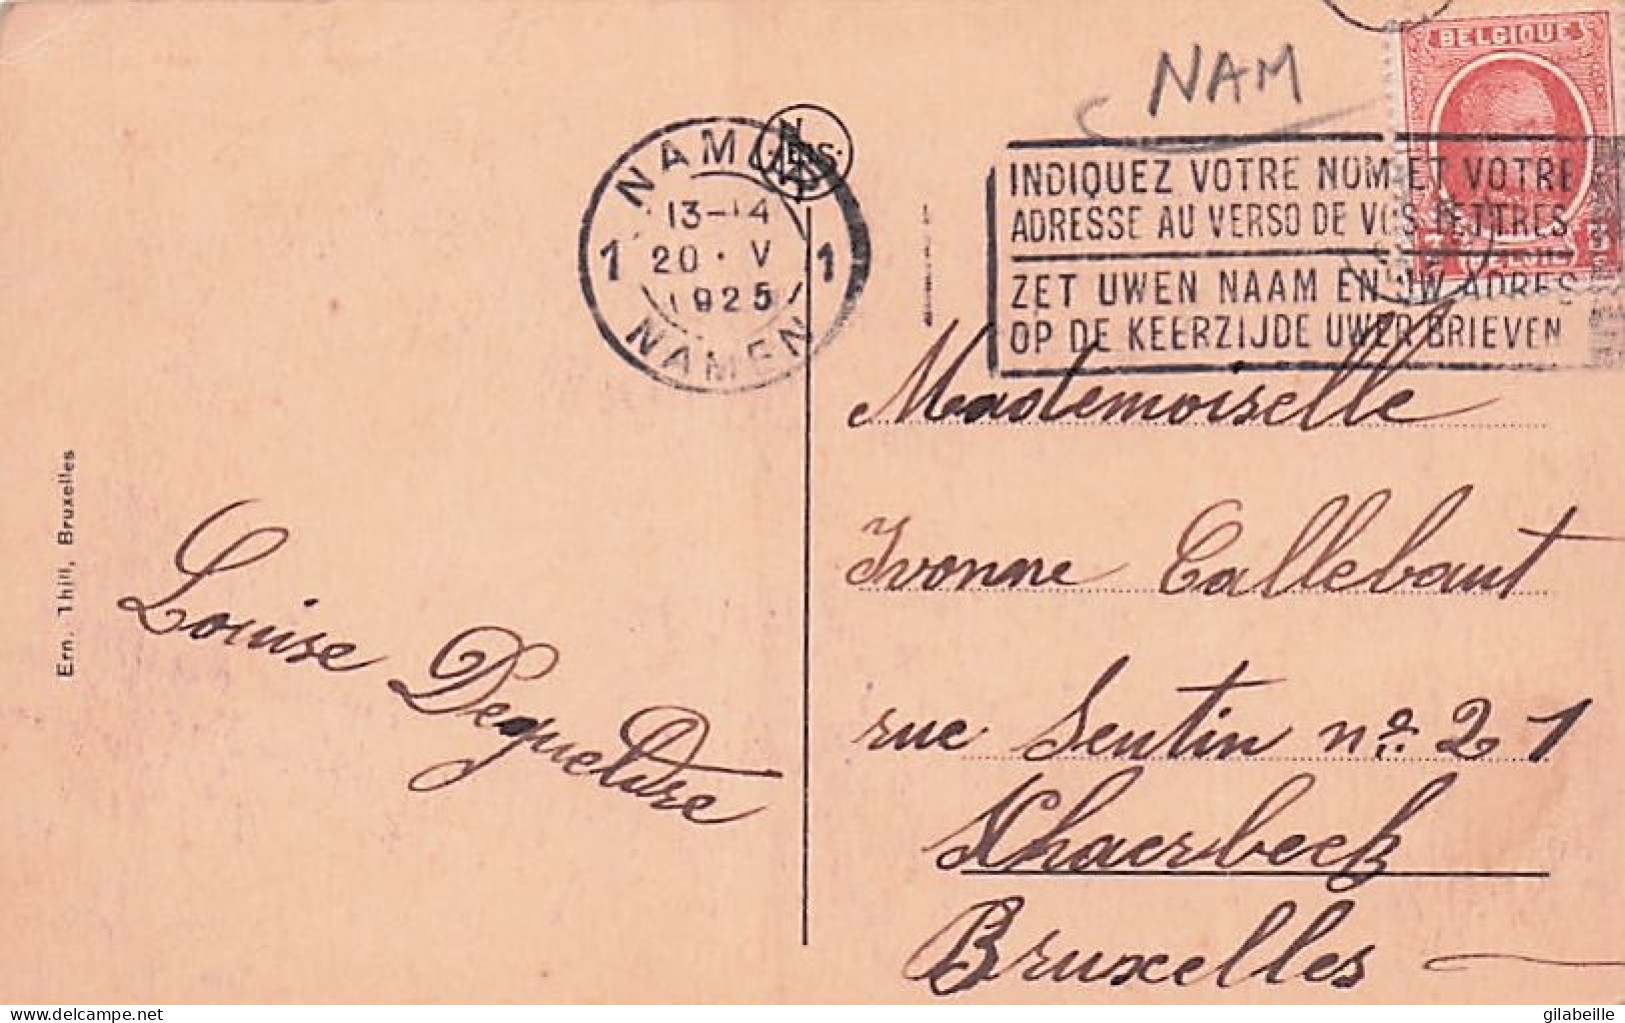 NAM
BELGIQUE
NAMUR
13-14
1 20 · V 1
1925
NAMEN
INDIQUEZ VOTRE NOM ET VOTRE
ADRESSE AU VERSO DE VOS LETTRES
ZET UWEN NAAM EN UW ADRES
OP DE KEERZIJDE UWER BRIEVEN
Ern. Thill, Bruxelles
Louise
Mademoiselle
Yvonne Callebaut
rue Sentin nº 21
Schaerbeek
Bruxelles
delcampe.net
gilabeille